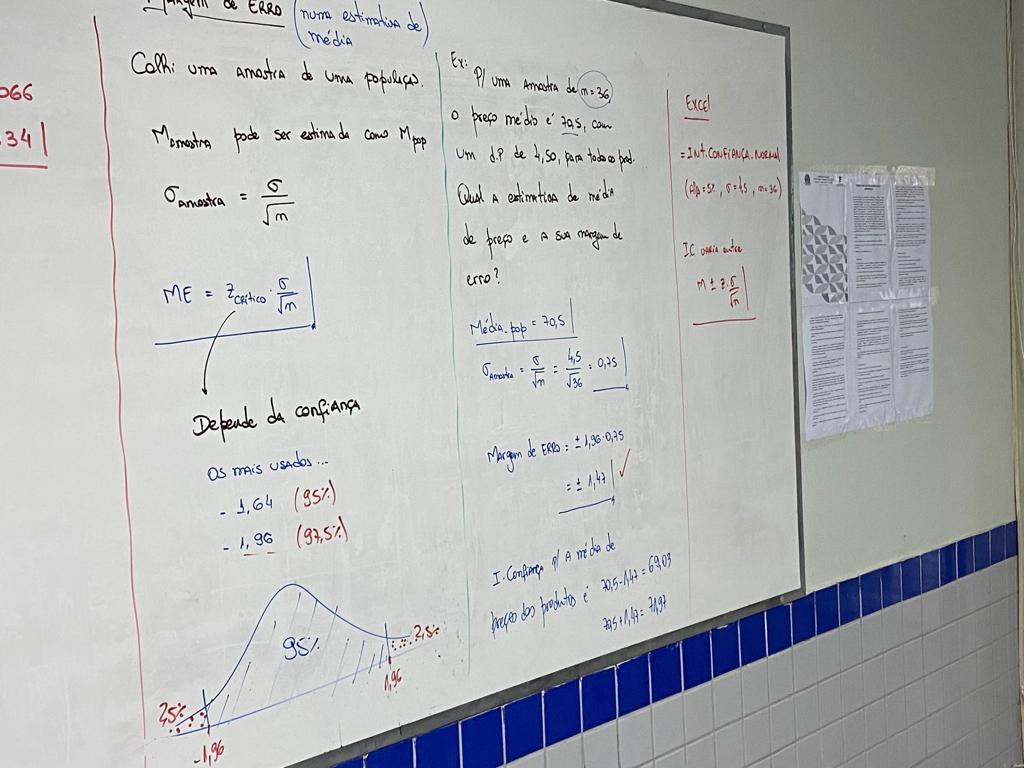 066
.34
Margem de ERRO (numa estimativa de
média)
Colhi uma amostra de uma populção.
Mamostra pode ser estimada como Mpop
σamostra = σ/√n
ME = Zcrítico · σ/√n
Depende da confiança
Os mais usados...
- 1,64 (95%)
- 1,96 (97,5%)
95%
2,5%
2,5%
-1,96
1,96
Ex: P/ uma amostra de n=36
o preço médio é 70,5, com
um d.p de 4,50, para todo o prod.
Qual a estimativa de média
de preço e a sua margem de
erro?
Média-pop = 70,5
σAmostra = σ/√n = 4,5/√36 = 0,75
Margem de ERRO = ± 1,96·0,75
= ± 1,47 ✓
I. Confiança p/ A média de
preços dos produtos é 70,5-1,47 = 69,03
70,5+1,47 = 71,97
EXCEL
= INT.CONFIANÇA.NORMAL
(Alfa=5%, σ=4,5, n=36)
IC varia entre
M ± z·σ/√n